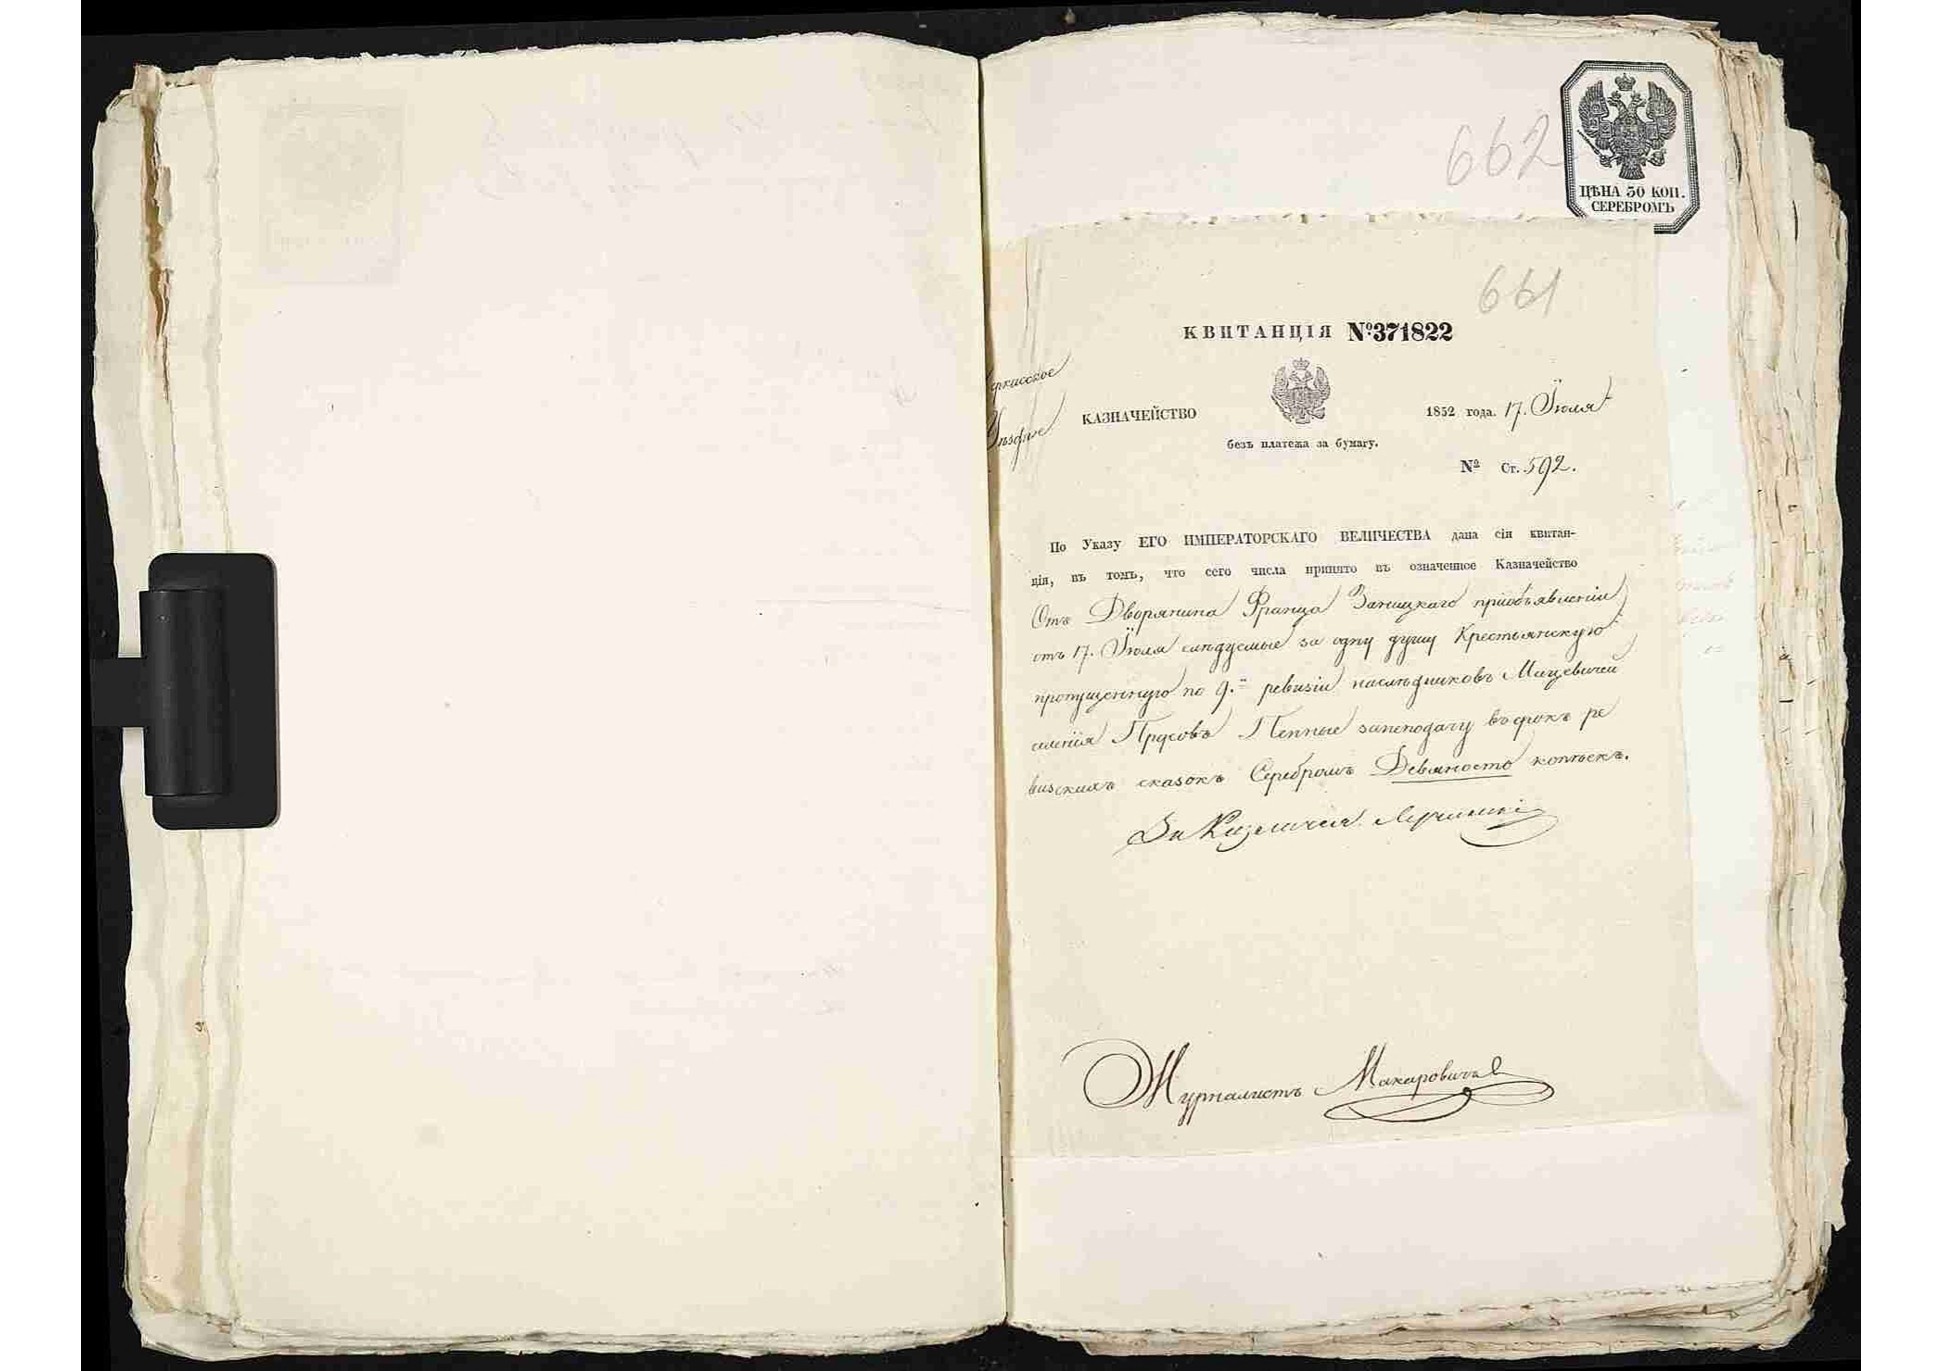 662
ЦѢНА 50 КОП.
СЕРЕБРОМЪ
661
КВИТАНЦІЯ №371822
еркасское
Уѣздное
КАЗНАЧЕЙСТВО
1852 года. 17. Іюля
безъ платежа за бумагу.
№ Ст. 592.
По Указу ЕГО ИМПЕРАТОРСКАГО ВЕЛИЧЕСТВА дана сія квитан-
ція, въ томъ, что сего числа принято въ означенное Казначейство
Отъ Дворянина Франца Заницкаго приобъявленіи
отъ 17. Іюля слѣдуемые за одну душу Крестьянскую
пропущенную по 9.й ревизіи наслѣдниковъ Мацевичей
селенія Прусовъ Пенные занеподачу въ срокъ ре
визскихъ сказокъ Серебромъ Девяносто копѣекъ.
За Казначея
Журналистъ Макаровичъ